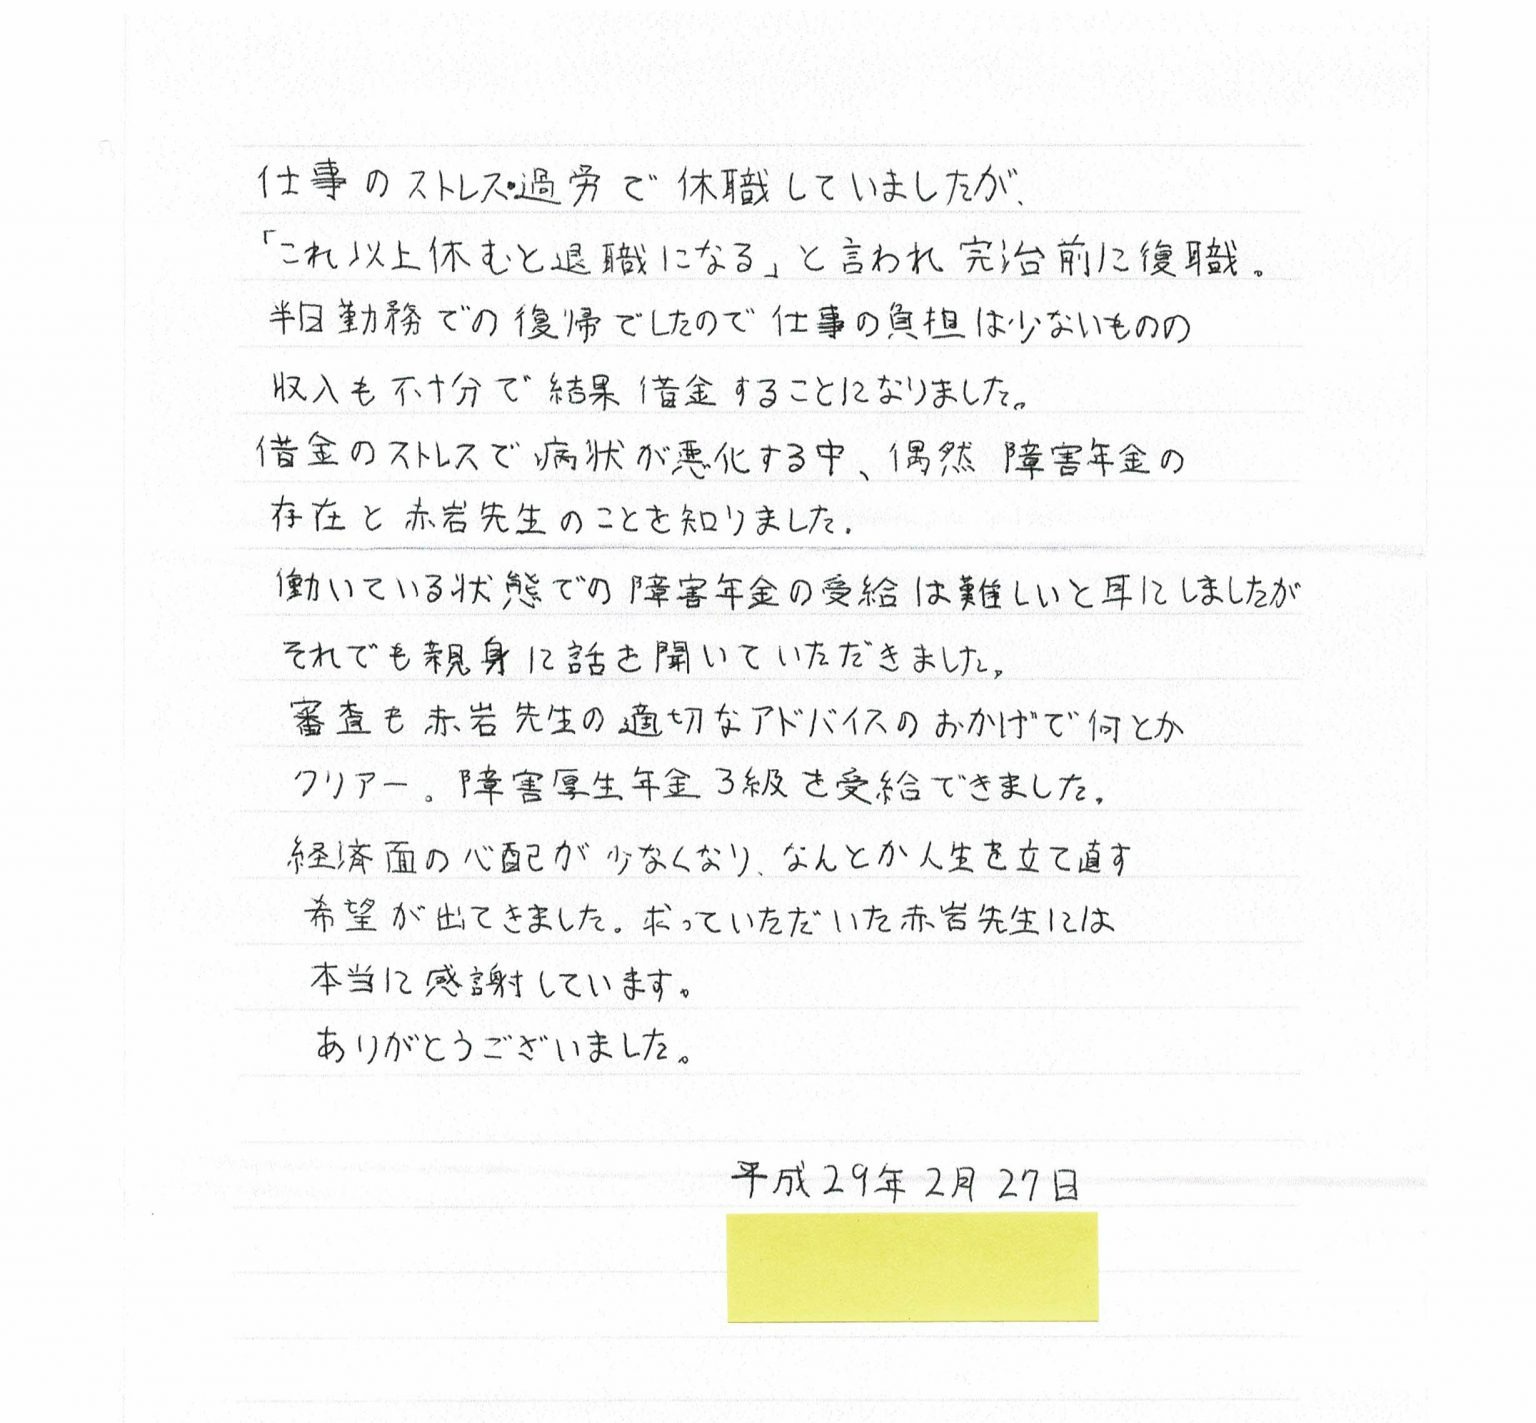 仕事のストレス・過労で休職していましたが、
「これ以上休むと退職になる」と言われ完治前に復職。
半日勤務での復帰でしたので仕事の負担は少ないものの
収入も不十分で結果借金することになりました。
借金のストレスで病状が悪化する中、偶然障害年金の
存在と赤岩先生のことを知りました。
働いている状態での障害年金の受給は難しいと耳にしましたが
それでも親身に話を聞いていただきました。
審査も赤岩先生の適切なアドバイスのおかげで何とか
クリアー。障害厚生年金3級を受給できました。
経済面の心配が少なくなり、なんとか人生を立て直す
希望が出てきました。求っていただいた赤岩先生には
本当に感謝しています。
ありがとうございました。
平成29年2月27日